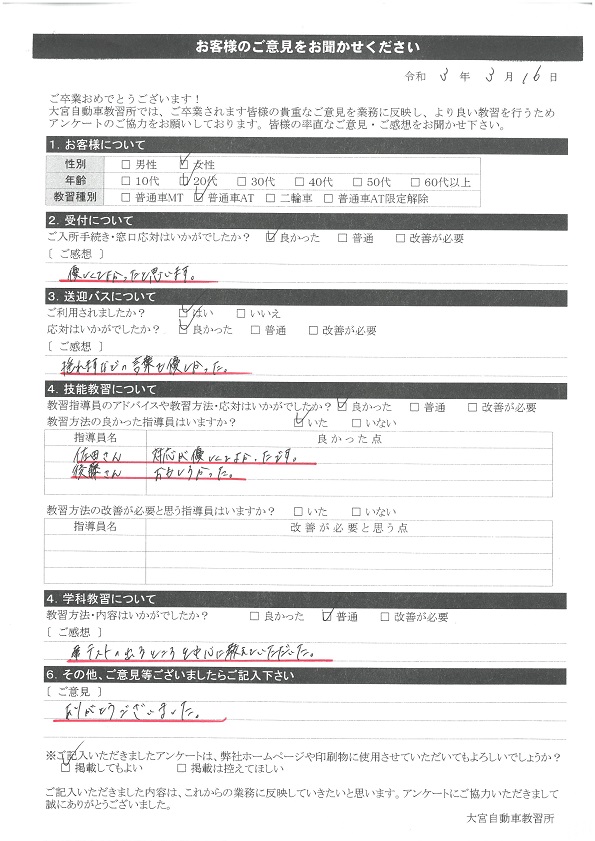 お客様のご意見をお聞かせください
令和 3 年 3 月 16 日
ご卒業おめでとうございます！
大宮自動車教習所では、ご卒業されます皆様の貴重なご意見を業務に反映し、より良い教習を行うため
アンケートのご協力をお願いしております。皆様の率直なご意見・ご感想をお聞かせ下さい。
1. お客様について
性別 □ 男性 ☑ 女性
年齢 □ 10代 ☑ 20代 □ 30代 □ 40代 □ 50代 □ 60代以上
教習種別 □ 普通車MT ☑ 普通車AT □ 二輪車 □ 普通車AT限定解除
2. 受付について
ご入所手続き・窓口応対はいかがでしたか？ ☑ 良かった □ 普通 □ 改善が必要
［ ご感想 ］
優しくてよかったと思います。
3. 送迎バスについて
ご利用されましたか？ ☑ はい □ いいえ
応対はいかがでしたか？ ☑ 良かった □ 普通 □ 改善が必要
［ ご感想 ］
挨拶などの言葉も優しかった。
4. 技能教習について
教習指導員のアドバイスや教習方法・応対はいかがでしたか？ ☑ 良かった □ 普通 □ 改善が必要
教習方法の良かった指導員はいますか？ ☑ いた □ いない
指導員名 良かった点
佐田さん 対応が優しくてよかったです。
後藤さん おもしろかった。
教習方法の改善が必要と思う指導員はいますか？ □ いた □ いない
指導員名 改善が必要と思う点
4. 学科教習について
教習方法・内容はいかがでしたか？ □ 良かった ☑ 普通 □ 改善が必要
［ ご感想 ］
テストのでるところを中心に教えていただいた。
6. その他、ご意見等ございましたらご記入下さい
［ ご意見 ］
ありがとうございました。
※ご記入いただきましたアンケートは、弊社ホームページや印刷物に使用させていただいてもよろしいでしょうか？
☑ 掲載してもよい □ 掲載は控えてほしい
ご記入いただきました内容は、これからの業務に反映していきたいと思います。アンケートにご協力いただきまして
誠にありがとうございました。
大宮自動車教習所